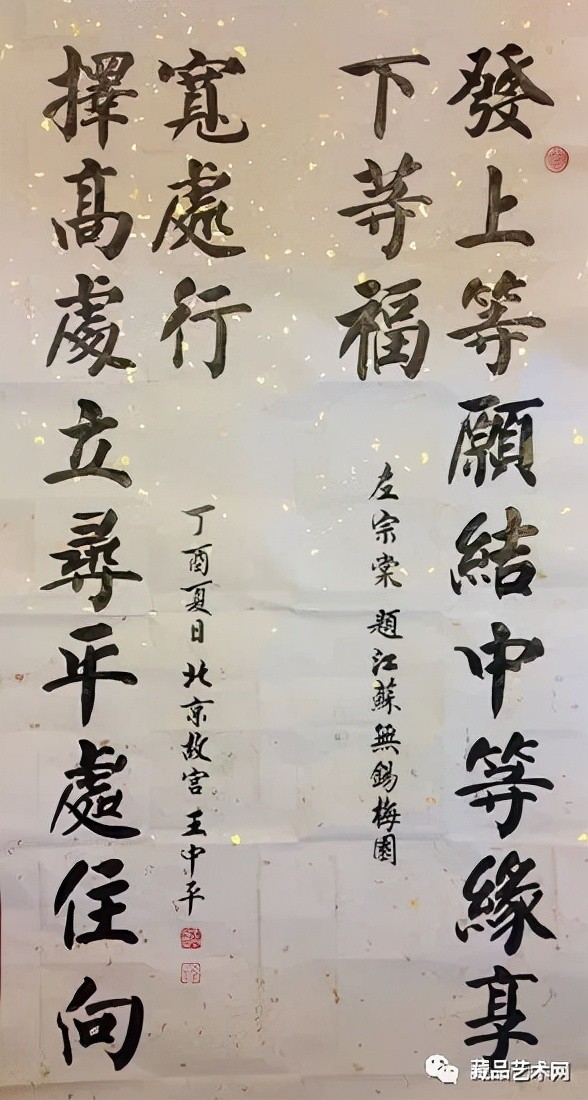 發上等願結中等緣享
下等福
左宗棠 題江蘇無錫梅園
擇高處立尋平處住向
寬處行
丁酉夏日北京故宮王中平
藏品艺术网